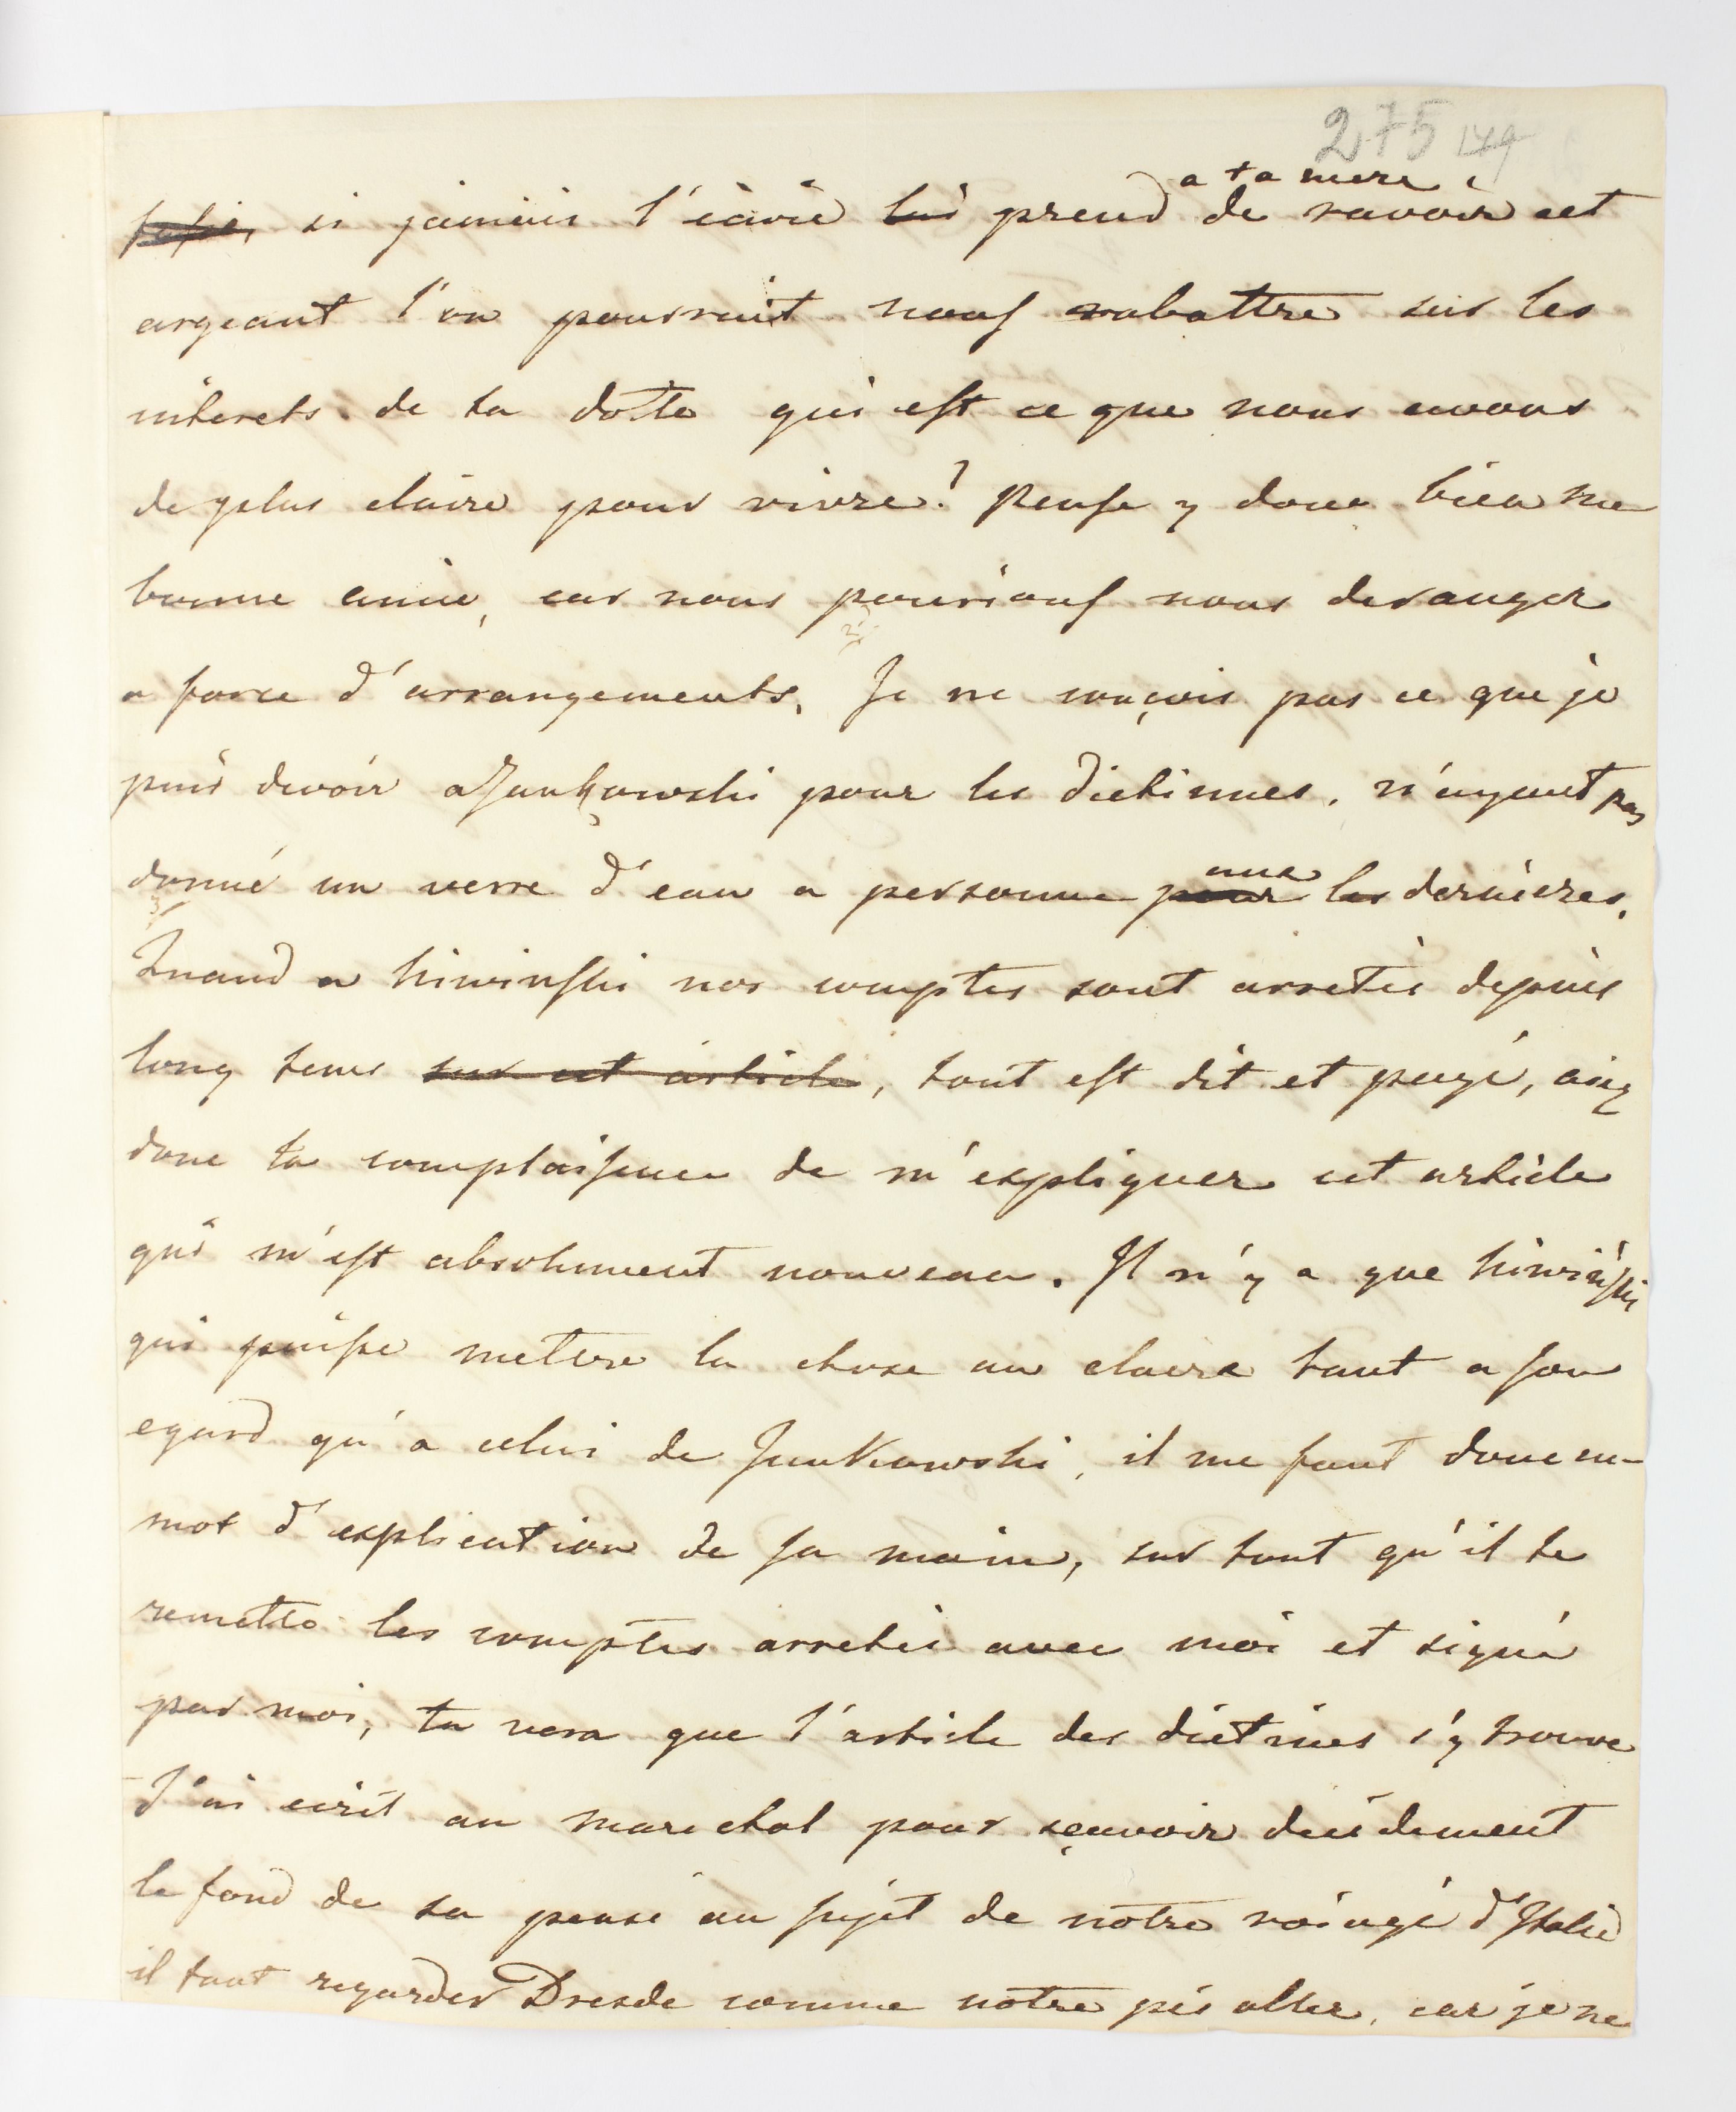 275 179
a ta mere
si jamais l'envie lui prend de ravoir cet
argeant l'on pourrait nous rabattre sur les
interets de ta dotte qui est ce que nous avons
de plus claire pour vivre? pense y donc bien ma
bonne amie, car nous pourions nous deranger
a force d'arrangements. Je ne conçois pas ce que je
puis devoir a Jankowski pour les dietinnes, n'ayant pas
donné un verre d'eau a personne pour les dernieres.
aux
Quand a Siwinski nos comptes sont arretés depuis
long tems sur cet article, tout est dit et payé, aiez
donc la complaisance de m'expliquer cet article
qui m'est absolument nouveau. Il n'y a que Siwiński
qui puisse metre la chose au claire tant a son
egard qu'a celui de Jankowski, il me faut donc un
mot d'explication de sa main, sur tout qu'il te
remette les comptes arretés avec moi et signé
par moi, tu vera que l'article des dietines s'y trouve
J'ai ecrit au marechal pour sçavoir decidement
le fond de sa pensé au sujet de notre voiage d'Italie
il faut regarder Dresde comme notre pis aller, car je ne